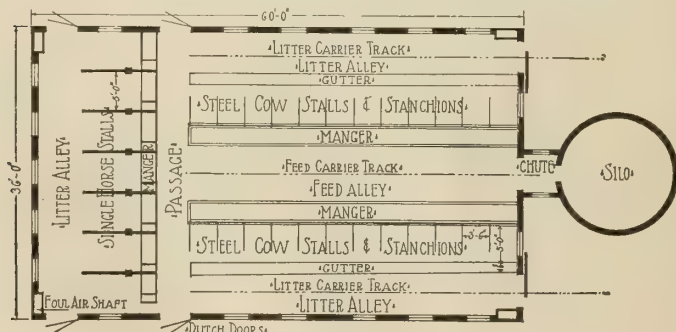 60'-0"
LITTER CARRIER TRACK
LITTER ALLEY
GUTTER
STEEL COW STALLS & STANCHIONS
MANGER
FEED CARRIER TRACK
FEED ALLEY
MANGER
STEEL COW STALLS & STANCHIONS
3'-6"
5'-0"
GUTTER
LITTER CARRIER TRACK
LITTER ALLEY
CHUTE
SILO
36'-0"
LITTER ALLEY
SINGLE HORSE STALLS
5'-0"
MANGER
PASSAGE
FOUL AIR SHAFT
DUTCH DOORS